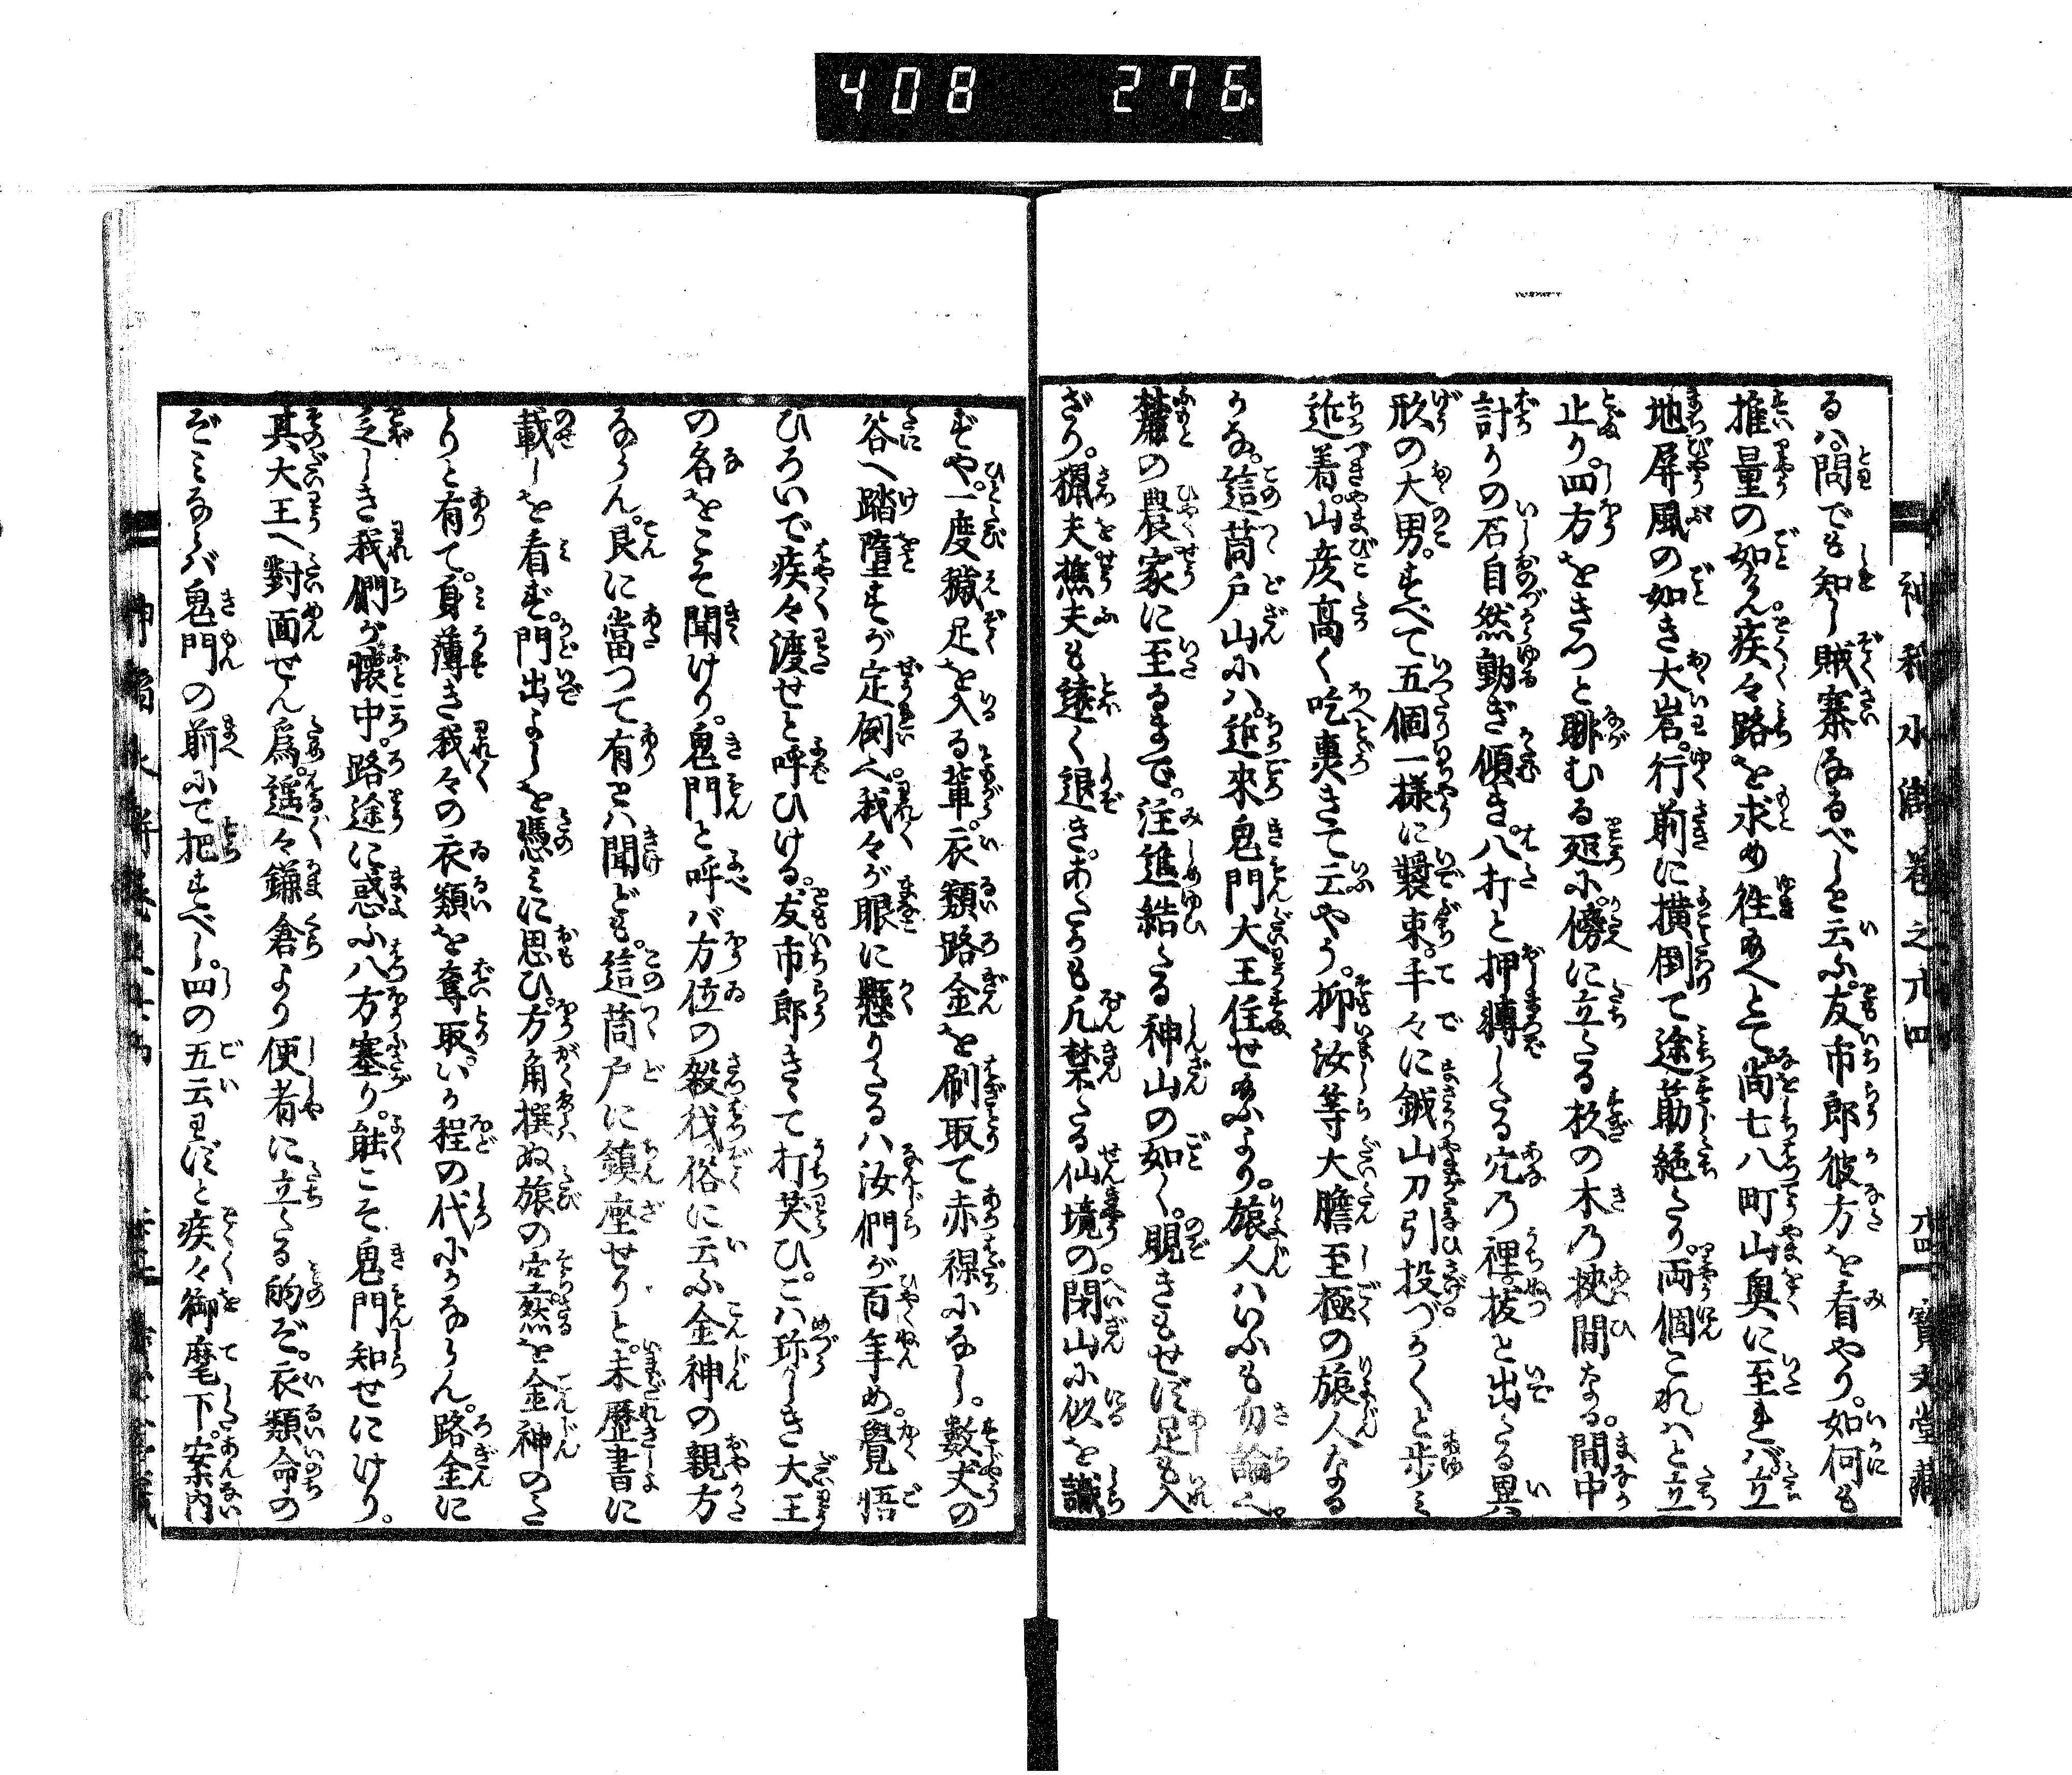 408 276
る。問でも知し賊寨なるべしと云ふ。友市郎彼方を看やり。如何も
推量の如く。疾々路を求め往給へとて。尚七八町山奥に至れバ。立
地屏風の如き大岩。行前に横倒て途莇絶たり。両個これハと立
止り。四方をきつと眺むる処に。傍に立たる杉の木乃挾間なる。間中
計りの石自然動ぎ傾き。八打と押轉したる穴乃裡。拔と出たる異
形の大男。すべて五個一様に嬖束。手々に鉞山刀引投づか〳〵と歩ミ
近着。山彦高く吃輿きて云やう。抑汝等大膽至極の旅人なる
かな。這筒戸山にハ。近來鬼門大王住せ給ふより。旅人ハいふも勿論へ
麓の農家に至るまで。注進結たる神山の如く。覘きもせず足も入
ざり。猟夫樵夫も遠く退き。あたかも厄禁たる仙境の閉山に似を識
ずや。一度穢足を入る輩。衣類路金を刷取て赤裸になし。數丈の
谷へ踏墮すが定例へ。我々が眼に懸りたるハ汝們が百年め。覺悟
ひろいで疾々渡せと呼ひける。友市郎きゝて打笑ひ。こハ珎らしき大王
の名をこそ聞けり。鬼門と呼バ方位の殺伐。俗に云ふ金神の親方
ならん。艮に當つて有とハ聞ども。這筒戸に鎮座せりと。未歴書に
載しを看ず。門出よしを憑ミに思ひ。方角撰ぬ旅の空。然を金神のた
りと有て。身薄き我々の衣類を奪取。いか程の代にかならん。路金に
乏しき我們が懐中。路途に惑ふ八方塞り。能こそ鬼門知せにけり。
其大王へ對面せん爲。遥々鎌倉より使者に立たる的ぞ。衣類命の
ぞミならバ鬼門の前にて把すべし。四の五云わずと疾々御麾下。案内